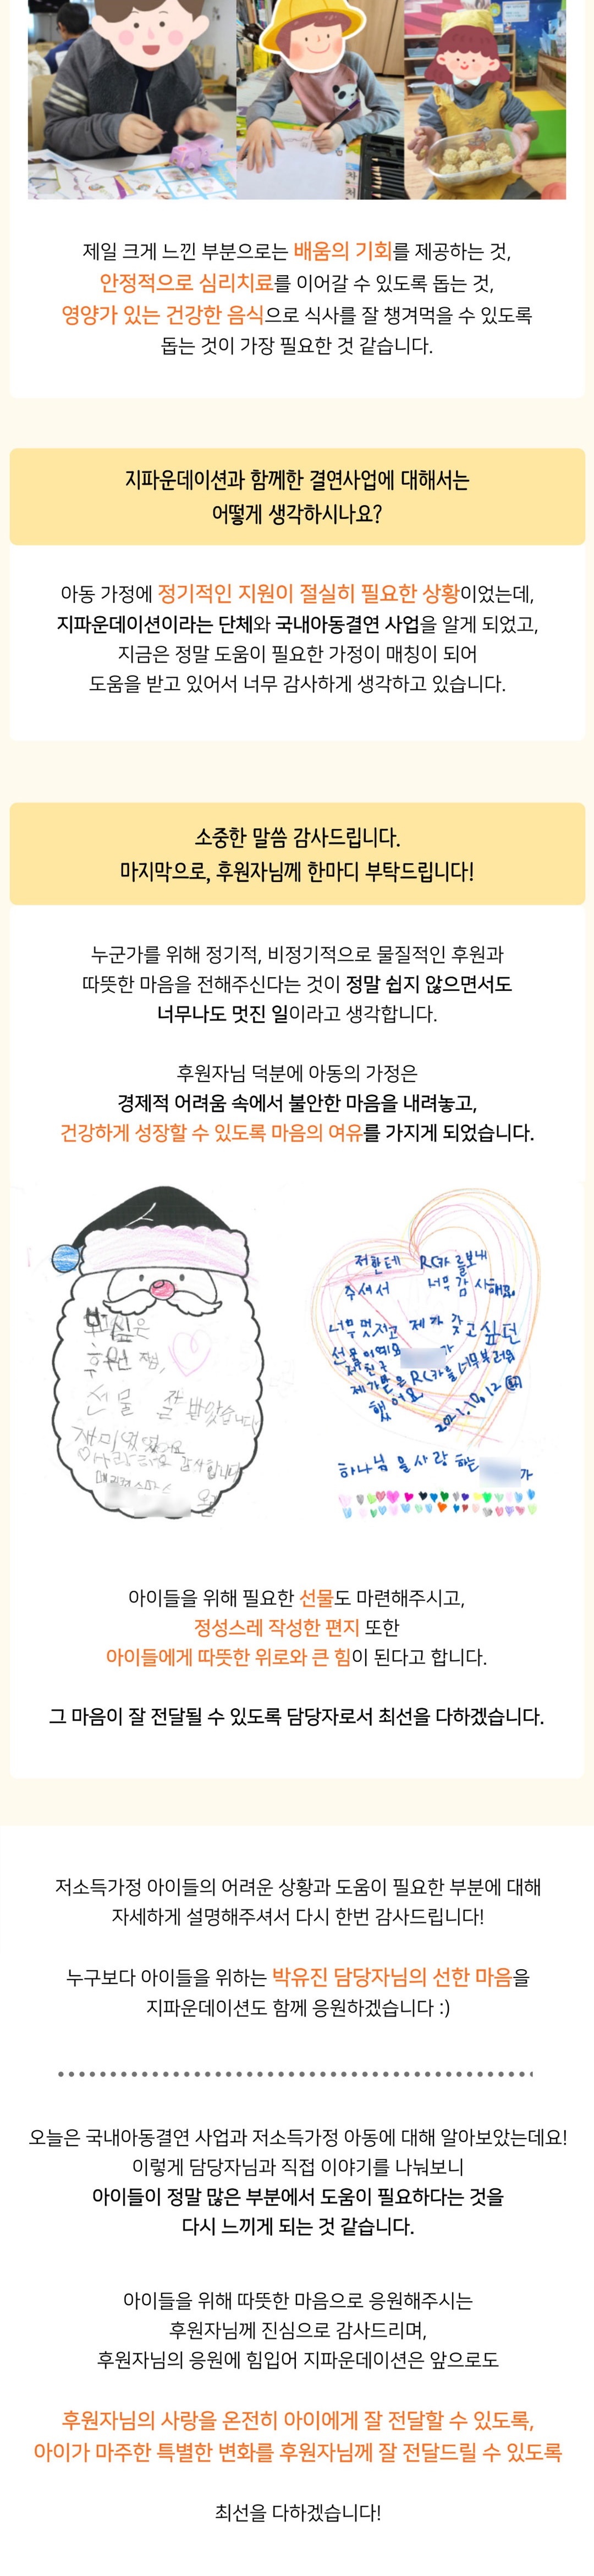 제일 크게 느낀 부분으로는 배움의 기회를 제공하는 것,
안정적으로 심리치료를 이어갈 수 있도록 돕는 것,
영양가 있는 건강한 음식으로 식사를 잘 챙겨먹을 수 있도록
돕는 것이 가장 필요한 것 같습니다.
지파운데이션과 함께한 결연사업에 대해서는
어떻게 생각하시나요?
아동 가정에 정기적인 지원이 절실히 필요한 상황이었는데,
지파운데이션이라는 단체와 국내아동결연 사업을 알게 되었고,
지금은 정말 도움이 필요한 가정이 매칭이 되어
도움을 받고 있어서 너무 감사하게 생각하고 있습니다.
소중한 말씀 감사드립니다.
마지막으로, 후원자님께 한마디 부탁드립니다!
누군가를 위해 정기적, 비정기적으로 물질적인 후원과
따뜻한 마음을 전해주신다는 것이 정말 쉽지 않으면서도
너무나도 멋진 일이라고 생각합니다.
후원자님 덕분에 아동의 가정은
경제적 어려움 속에서 불안한 마음을 내려놓고,
건강하게 성장할 수 있도록 마음의 여유를 가지게 되었습니다.
후원자님,
선물 잘 받았습니다
재미있었어요
사랑해요 감사합니다
메리크리스마스
올림
저한테 RC카를 보내
주셔서 너무 감사해요.
너무 멋지고 제가 갖고 싶던
선물이예요
제 친구 가
제가 받은 RC카를 너무 부러워
했어요
2021.10.12
하나님을 사랑하는 가
아이들을 위해 필요한 선물도 마련해주시고,
정성스레 작성한 편지 또한
아이들에게 따뜻한 위로와 큰 힘이 된다고 합니다.
그 마음이 잘 전달될 수 있도록 담당자로서 최선을 다하겠습니다.
저소득가정 아이들의 어려운 상황과 도움이 필요한 부분에 대해
자세하게 설명해주셔서 다시 한번 감사드립니다!
누구보다 아이들을 위하는 박유진 담당자님의 선한 마음을
지파운데이션도 함께 응원하겠습니다 :)
오늘은 국내아동결연 사업과 저소득가정 아동에 대해 알아보았는데요!
이렇게 담당자님과 직접 이야기를 나눠보니
아이들이 정말 많은 부분에서 도움이 필요하다는 것을
다시 느끼게 되는 것 같습니다.
아이들을 위해 따뜻한 마음으로 응원해주시는
후원자님께 진심으로 감사드리며,
후원자님의 응원에 힘입어 지파운데이션은 앞으로도
후원자님의 사랑을 온전히 아이에게 잘 전달할 수 있도록,
아이가 마주한 특별한 변화를 후원자님께 잘 전달드릴 수 있도록
최선을 다하겠습니다!